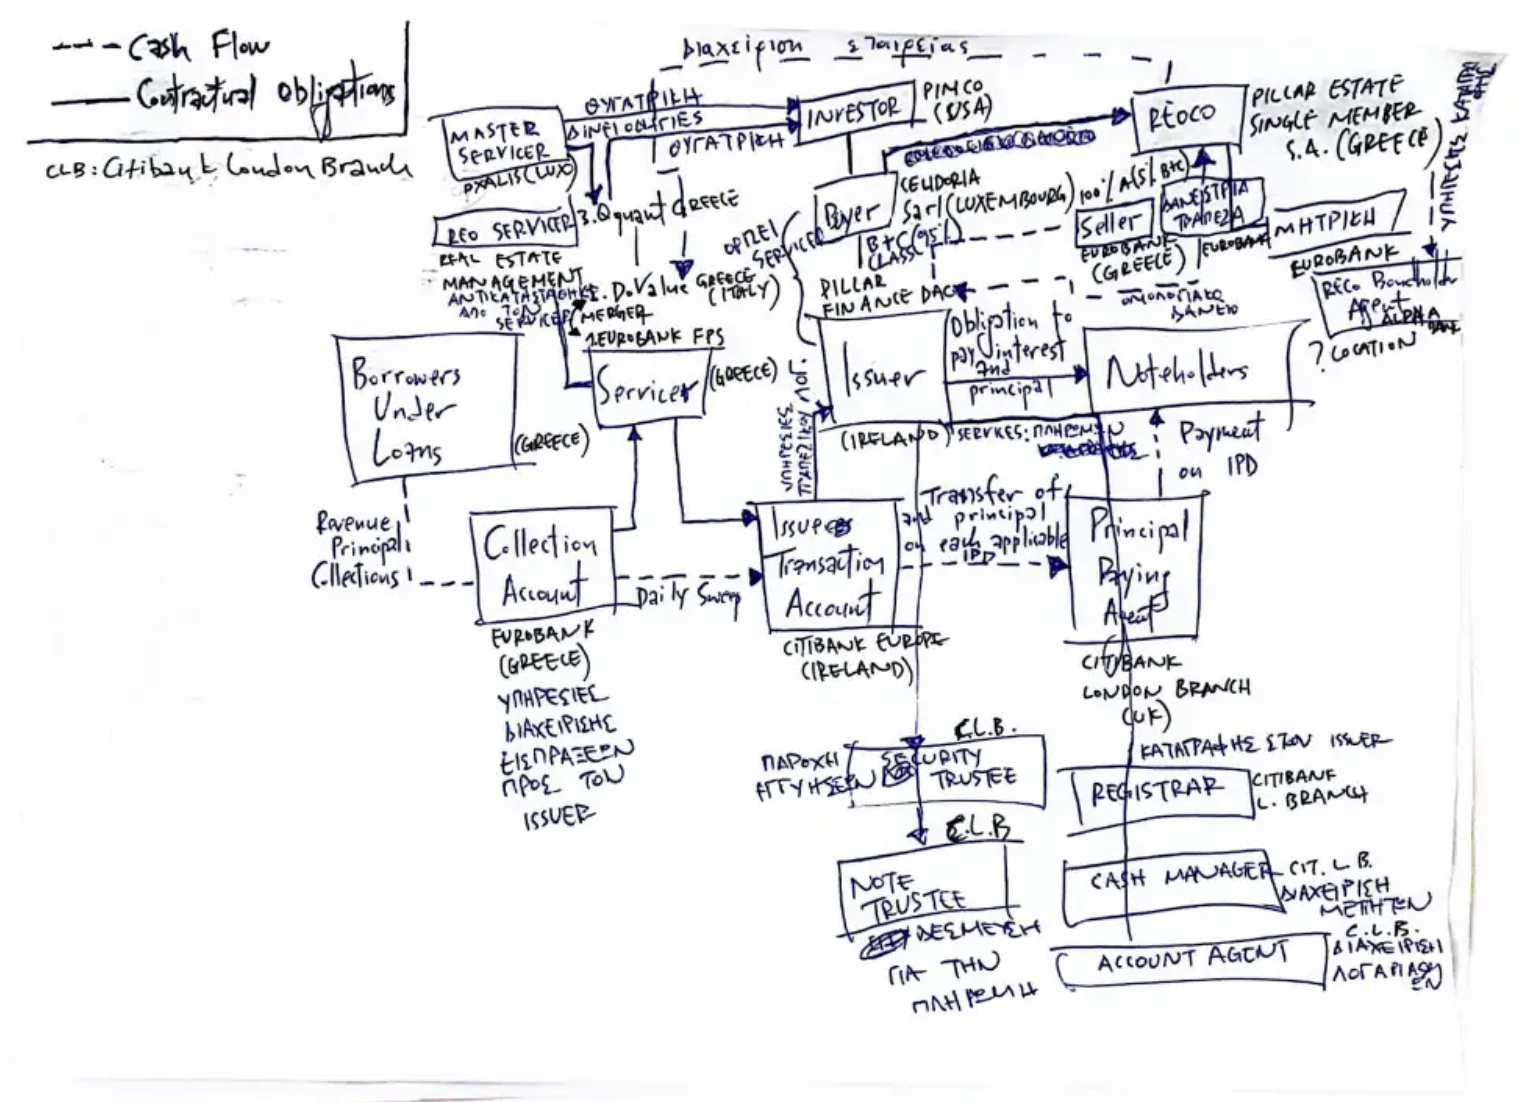 Cash Flow
Contractual Obligations
CLB: Citibank London Branch
Διαχείριση εταιρείας
ΘΥΓΑΤΡΙΚΗ
ΘΥΓΑΤΡΙΚΗ
MASTER
SERVICER
(LUX)
INVESTOR
PIMCO
(USA)
REOCO
PILLAR ESTATE
SINGLE MEMBER
S.A. (GREECE)
REO SERVICER
REAL ESTATE
MANAGEMENT
3. Qquant GREECE
2. DoValue GREECE
(ITALY)
MERGER
1. EUROBANK FPS
ΑΠΟ ΤΟΝ
SERVICER
Buyer
Sarl (LUXEMBOURG)
B+C (95%)
CLASS
ΟΡΙΖΕΙ
SERVICER
100% A (5% B+C)
Seller
EUROBANK
(GREECE)
ΔΑΝΕΙΣΤΡΙΑ
ΤΡΑΠΕΖΑ
EUROBANK
ΜΗΤΡΙΚΗ
EUROBANK
REOCO Bondholder
Agent
ALPHA
BANK
? LOCATION
ΟΜΟΛΟΓΙΑΚΟ
ΔΑΝΕΙΟ
PILLAR
FINANCE DAC
Issuer
(IRELAND)
Obligation to
pay interest
and
principal
Noteholders
Payment
on IPD
Borrowers
Under
Loans
(GREECE)
Servicer
(GREECE)
ΥΠΗΡΕΣΙΕΣ
ΤΡΑΠΕΖΙΚΟΥ ΛΟΓ.
Revenue
Principal
Collections
Collection
Account
EUROBANK
(GREECE)
ΥΠΗΡΕΣΙΕΣ
ΔΙΑΧΕΙΡΙΣΗΣ
ΕΙΣΠΡΑΞΕΩΝ
ΠΡΟΣ ΤΟΝ
ISSUER
Daily Sweep
Issuer
Transaction
Account
CITIBANK EUROPE
(IRELAND)
Transfer of
and principal
on each applicable
IPD
Principal
Paying
Agent
CITIBANK
LONDON BRANCH
(UK)
C.L.B.
SECURITY
TRUSTEE
ΠΑΡΟΧΗ
ΕΓΓΥΗΣΕΩΝ
C.L.B
NOTE
TRUSTEE
ΔΕΣΜΕΥΣΗ
ΓΙΑ ΤΗΝ
ΠΛΗΡΩΜΗ
ΚΑΤΑΓΡΑΦΗΣ ΣΤΟΝ ISSUER
REGISTRAR
CITIBANK
L. BRANCH
CASH MANAGER
CIT. L. B.
ΔΙΑΧΕΙΡΙΣΗ
ΜΕΤΡΗΤΩΝ
ACCOUNT AGENT
C.L.B.
ΔΙΑΧΕΙΡΙΣΗ
ΛΟΓΑΡΙΑΣΜΩΝ